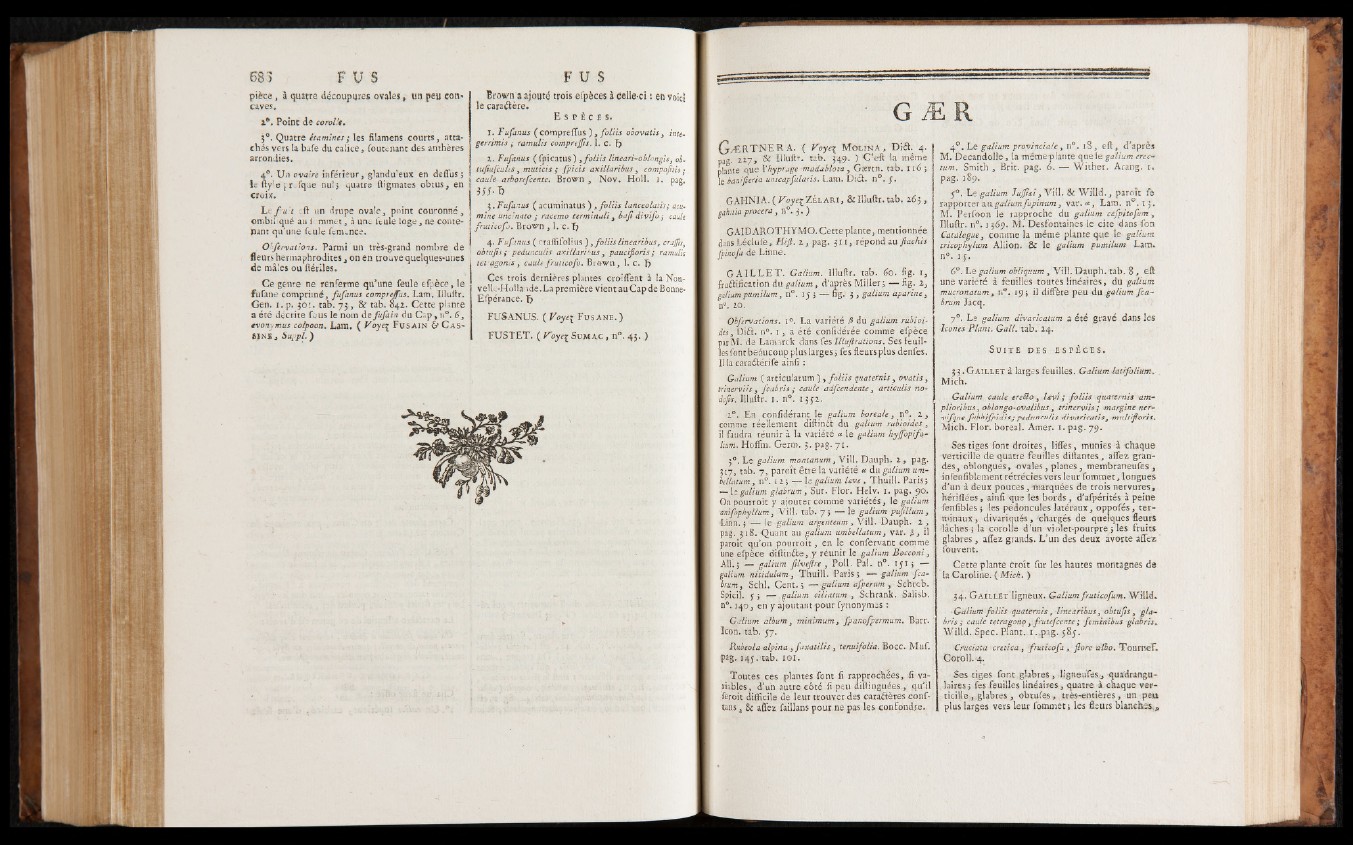 685 F U S
pièce, à quatre découpures ovales, un peu con-
caves.
2°. Point de corolle.
3°. Quatre étamines; les filamens courts, atta-
chés vers la base du calice, soutenant des anthères
arrondies.
4°. Un ovaire inférieur, glanduleux en dessus;
le style presque nul; quatre stigmates obtus, en
croix.
Le fruit est un drupe ovale, point couronné,
ombiliqué au sommet, à une seule loge, ne conte-
nant qu'une seule semence.
Observations. Parmi un très-grand nombre de
fleurs hermaphrodites, on en trouve quelques-unes
de mâles ou stériles.
Ce genre ne renferme qu'une seule espèce, le
fusane comprimé, fusanus compressus. Lam. Illustr.
Gen. 1. p. 301, tab. 73, & tab. 842. Cette plante
a été décrite sous le nom de fusain du Cap, n°. 6,
evonymus colpoon. Lam. (Voyez FUSAIN & CAS-
SINE, Suppl.)
F U S
Brown a ajouté trois espèces à celle-ci : en voici
le caractère.
ESPÈCES.
1. Fusanus (compressus), foliis obovatis, inte-
gerrimis; ramulis compressis. l. c. ♄
2. Fusanus (spicatus), foliis lineari-oblongis, ob-
tusiusculis, muticis; spicis axillaribus, compositis;
caule arborescente. Brown, Nov. Holl. 1. pag.
355. ♄
3. Fusanus (acuminatus), foliis lanceolatis; acu-
mine uncinato; racemo terminali, basi diviso; caule
fruticoso. Brown, l. c. ♄
4. Fusanus (crassifolius), foliis linearibus, crassis,
obtusis; pedunculis axillaribus, paucifloris; ramulis
tetragonis, caule fruticoso. Brown, l. c. ♄
Ces trois dernières plantes croissent à la Nou-
velle-Hollande. La première vient au Cap de Bonne-
Espérance. ♄
FUSANUS. (Voyez FUSANE.)
FUSTET. (Voyez SUMAC, n°. 43.)
G Æ R
GÆRTNERA. (Voyez MOLINA, Dict. 4.
pag. 227, & Illustr. tab. 349.) C'est la même
plante que l'hyptage madablota, Gærtn. tab. 116;
le banisteria unicapsularis. Lam. Dict. n°. 5.
GAHNIA. (Voyez ZÉLARI, & Illustr. tab. 263,
gahnia procera, n°. 3.)
GAIDAROTHYMO. Cette plante, mentionnée
dans Lécluse, Hist. 2, pag. 311, répond au stachis
spinosa de Linné.
GAILLET. Galium. Illustr. tab. 60. fig. 1,
fructification du galium, d'après Miller; — fig. 2,
galium pumilum, n°. 15; — fig. 3, galium aparine,
n°. 20.
Observations. 1°. La variété β du galium rubioi-
des, Dict. n°. 1, a été considérée comme espèce
par M. de Lamarck dans ses Illustrations. Ses feuil-
les sont beaucoup plus larges; ses fleurs plus denses.
Il la caractérise ainsi :
Galium (articulatum), foliis quaternis, ovatis,
trinerviis, scabris; caule adscendente, articulis no-
dosis. Illustr. 1. n°. 1352.
2°. En considérant le galium boreale, n°. 2,
comme réellement distinct du galium rubioides,
il faudra réunir à la variété α le galium hyssopifo-
lium. Hoffm. Germ. 3. pag. 71.
3°. Le galium montanum, Vill. Dauph. 2, pag.
317, tab. 7, paroît être la variété α du galium um-
bellatum, n°. 12; — le galium læve, Thuill. Paris;
— le galium glabrum, Sut. Flor. Helv. 1. pag. 90.
On pourroit y ajouter comme variétés, le galium
anisophyllum, Vill. tab. 7; — le galium pusillum,
Linn.; — le galium argenteum, Vill. Dauph. 2,
pag. 318. Quant au galium umbellatum, var. β, il
paroît qu'on pourroit, en le conservant comme
une espèce distincte, y réunir le galium Bocconi,
All.; — galium silvestre, Poll. Pal. n°. 151; —
galium nitidulum, Thuill. Paris; — galium sca-
brum, Schl. Cent.; — galium asperum, Schreb.
Spicil. 5; — galium ciliatum, Schrank. Salisb.
n°. 240, en y ajoutant pour synonymes :
Galium album, minimum, spanospermum. Barr.
Icon. tab. 57.
Rubeola alpina, saxatilis, tenuifolia. Bocc. Mus.
pag. 145. tab. 101.
Toutes ces plantes sont si rapprochées, si va-
riables, d'un autre côté si peu distinguées, qu'il
seroit difficile de leur trouver des caractères cons-
tans, & assez saillans pour ne pas les confondre.
4°. Le galium provinciale, n°. 18, est, d'après
M. Decandolle, la même plante que le galium erec-
tum. Smith, Brit. pag. 6. — Wither. Arang. 1.
pag. 189.
5°. Le galium Jussiei, Vill. & Willd., paroît se
rapporter au galium supinum, var. α, Lam. n°. 13.
M. Persoon le rapproche du galium cæspitosum,
Illustr. n°. 1369. M. Desfontaines le cite dans son
Catalogue, comme la même plante que le galium
tricophylum Allion. & le galium pumilum Lam.
n°. 15.
6°. Le galium obliquum, Vill. Dauph. tab. 8, est
une variété à feuilles toutes linéaires, du galium
mucronatum, n°. 19; il diffère peu du galium sca-
brum Jacq.
7°. Le galium divaricatum a été gravé dans les
Icones Plant. Gall. tab. 24.
SUITE DES ESPÈCES.
33. GAILLET à larges feuilles. Galium latifolium.
Mich.
Galium caule erecto, lævi; foliis quaternis am-
plioribus, oblongo-ovalibus, trinerviis; margine ner-
visque subhispidis; pedunculis divaricatis, multifloris.
Mich. Flor. boreal. Amer. 1. pag. 79.
Ses tiges sont droites, lisses, munies à chaque
verticille de quatre feuilles distantes, assez gran-
des, oblongues, ovales, planes, membraneuses,
insensiblement rétrécies vers leur sommet, longues
d'un à deux pouces, marquées de trois nervures,
hérissées, ainsi que les bords, d'aspérités à peine
sensibles; les pédoncules latéraux, opposés, ter-
minaux, divariqués, chargés de quelques fleurs
lâches; la corolle d'un violet-pourpre; les fruits
glabres, assez grands. L'un des deux avorte assez
souvent.
Cette plante croît sur les hautes montagnes de
la Caroline. (Mich.)
34. GAILLET ligneux. Galium fruticosum. Willd.
Galium foliis quaternis, linearibus, obtusis, gla-
bris; caule tetragono, frutescente; seminibus glabris.
Willd. Spec. Plant. 1. pag. 585.
Cruciata cretica, fruticosa, flore albo. Tournef.
Coroll. 4.
Ses tiges sont glabres, ligneuses, quadrangu-
laires; ses feuilles linéaires, quatre à chaque ver-
ticille, glabres, obtuses, très-entières, un peu
plus larges vers leur sommet; les fleurs blanches,